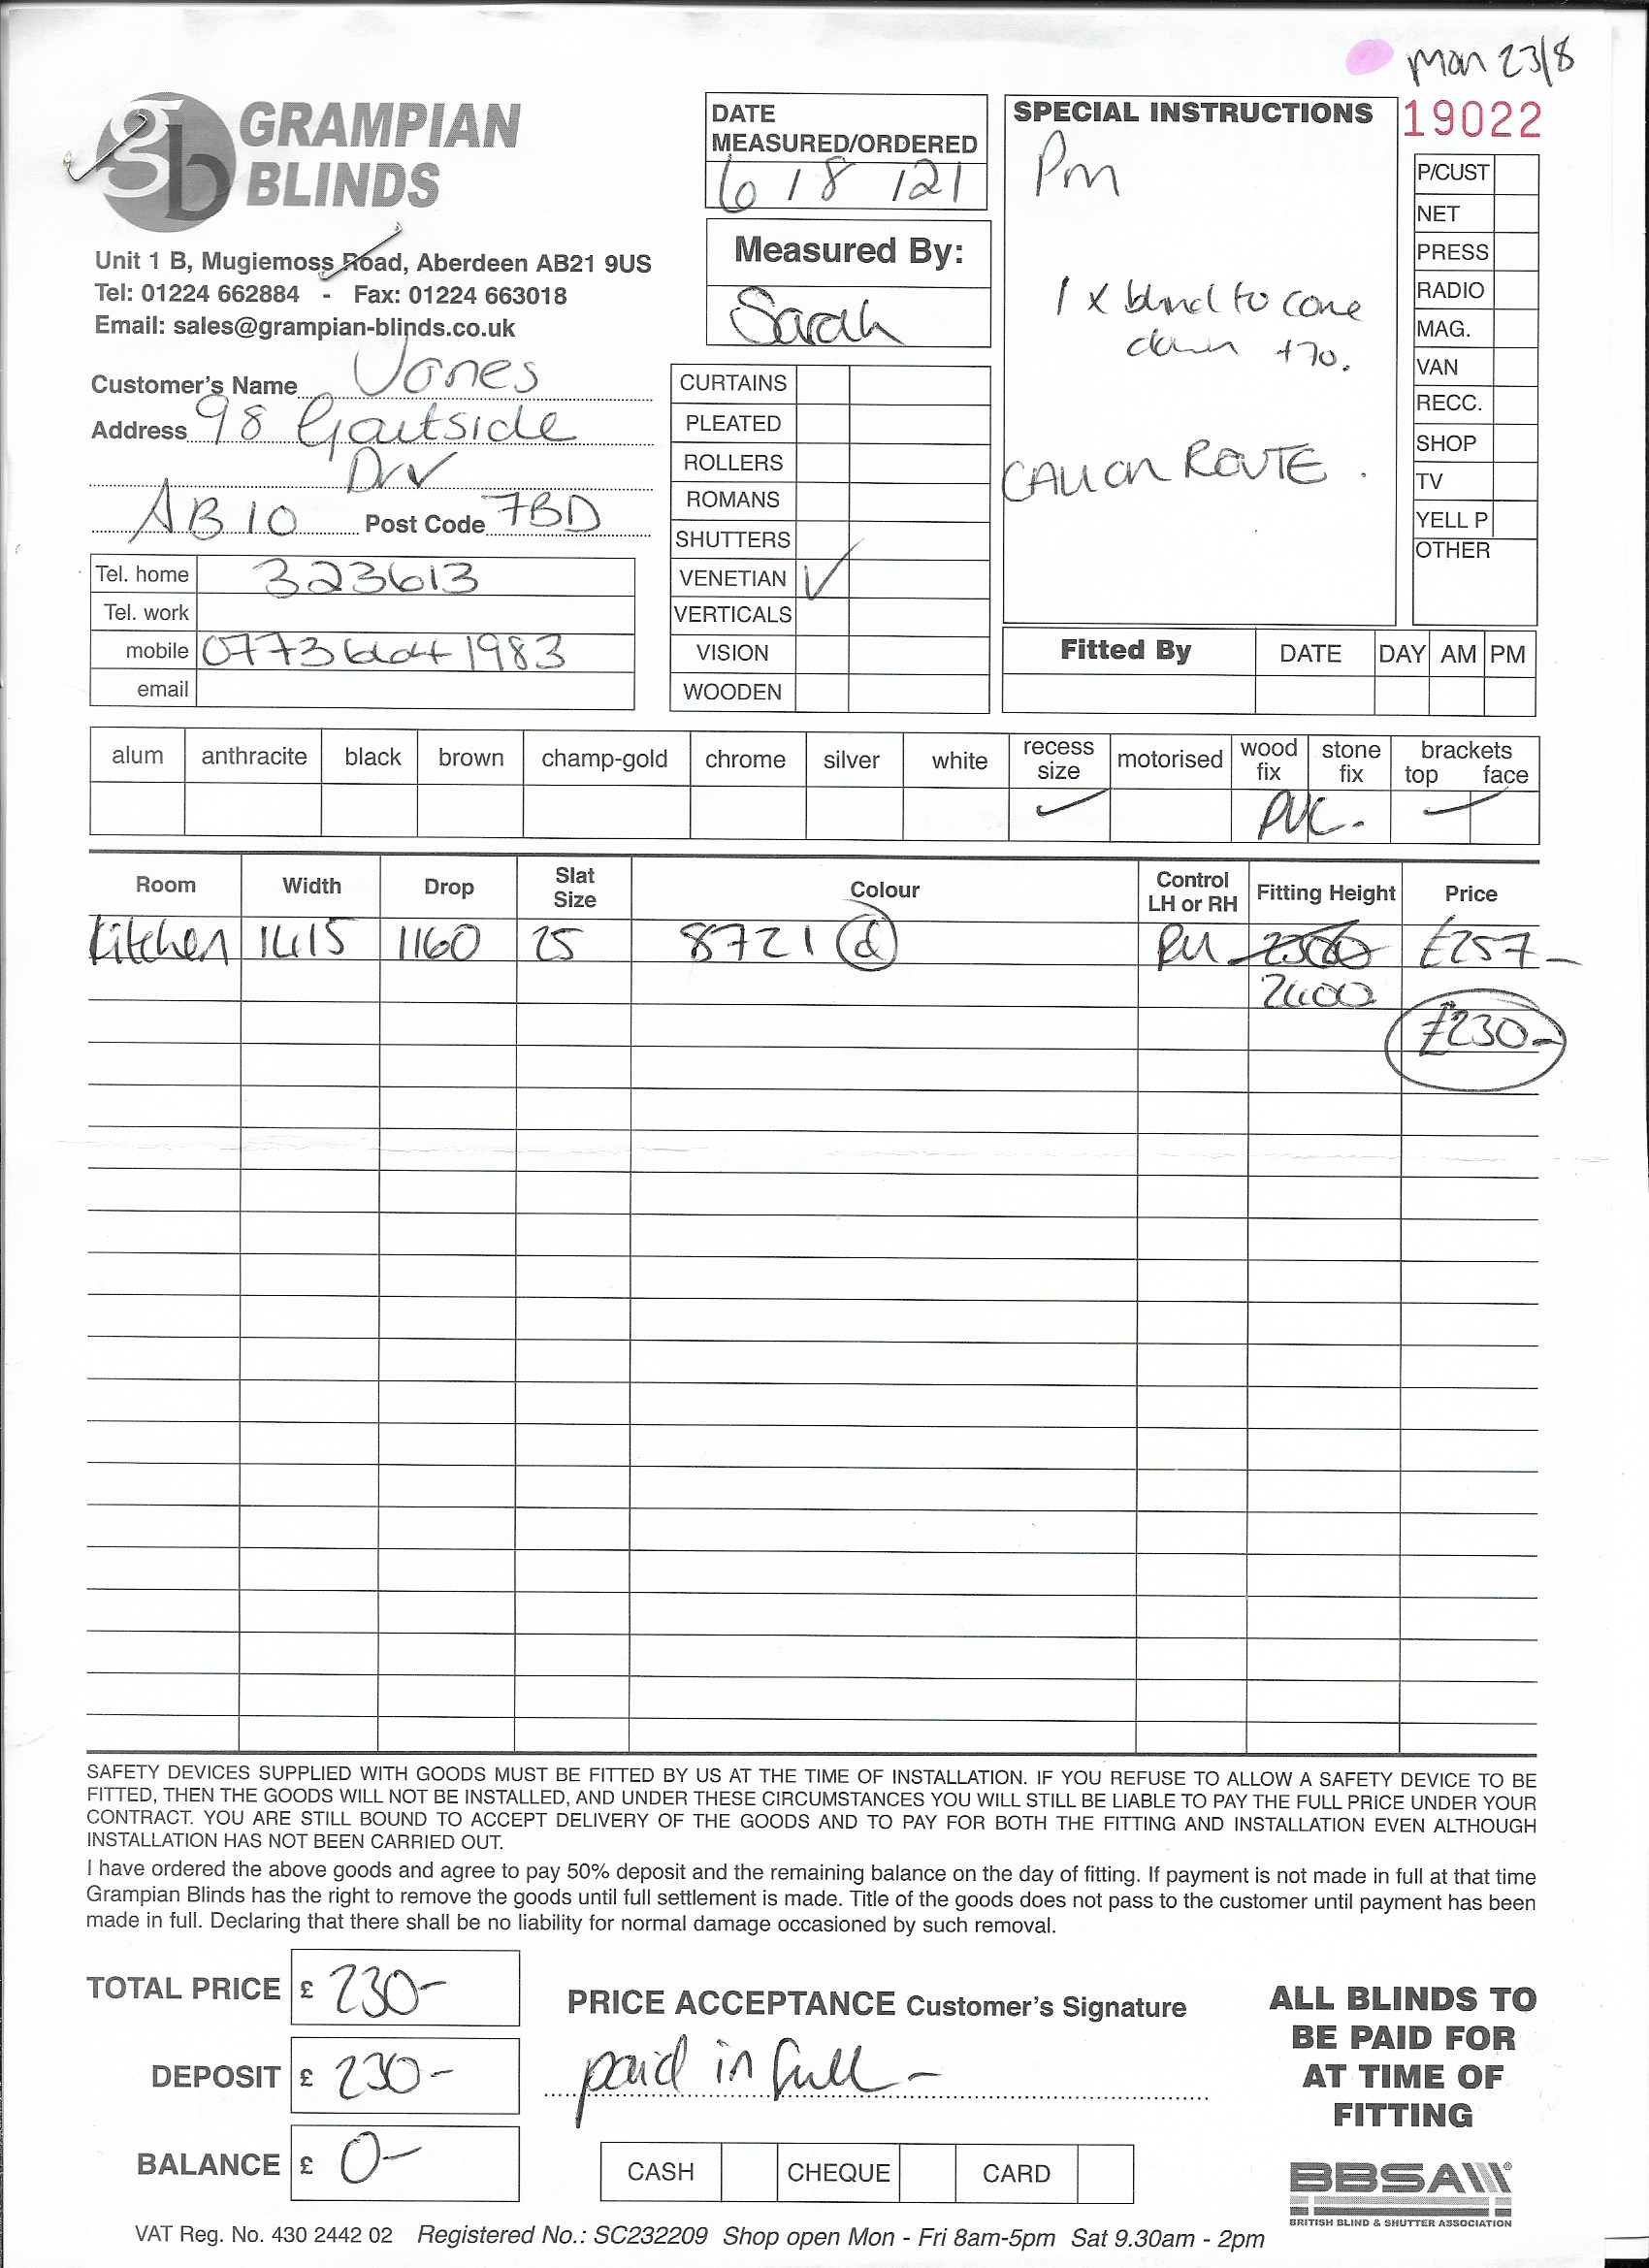 Mon 23/8
GRAMPIAN
BLINDS
gb
Unit 1 B, Mugiemoss Road, Aberdeen AB21 9US
Tel: 01224 662884 - Fax: 01224 663018
Email: sales@grampian-blinds.co.uk
Customer's Name Jones
Address 98 Gartside
Drv
AB10 Post Code 7BD
Tel. home 323613
Tel. work
mobile
email
DATE
MEASURED/ORDERED
6/8/21
Measured By:
Sarah
CURTAINS
PLEATED
ROLLERS
ROMANS
SHUTTERS
VENETIAN ✓
VERTICALS
VISION
WOODEN
SPECIAL INSTRUCTIONS
Pm
1 x blind to come
down +70.
CALL ON ROUTE.
19022
P/CUST
NET
PRESS
RADIO
MAG.
VAN
RECC.
SHOP
TV
YELL P
OTHER
Fitted By DATE DAY AM PM
alum anthracite black brown champ-gold chrome silver white recess size motorised wood fix stone fix brackets top face
✓ PVC. ✓
Room Width Drop Slat Size Colour Control LH or RH Fitting Height Price
Kitchen 1415 1160 25 8721 d RH 2300 £257-
2400
£230-
SAFETY DEVICES SUPPLIED WITH GOODS MUST BE FITTED BY US AT THE TIME OF INSTALLATION. IF YOU REFUSE TO ALLOW A SAFETY DEVICE TO BE
FITTED, THEN THE GOODS WILL NOT BE INSTALLED, AND UNDER THESE CIRCUMSTANCES YOU WILL STILL BE LIABLE TO PAY THE FULL PRICE UNDER YOUR
CONTRACT. YOU ARE STILL BOUND TO ACCEPT DELIVERY OF THE GOODS AND TO PAY FOR BOTH THE FITTING AND INSTALLATION EVEN ALTHOUGH
INSTALLATION HAS NOT BEEN CARRIED OUT.
I have ordered the above goods and agree to pay 50% deposit and the remaining balance on the day of fitting. If payment is not made in full at that time
Grampian Blinds has the right to remove the goods until full settlement is made. Title of the goods does not pass to the customer until payment has been
made in full. Declaring that there shall be no liability for normal damage occasioned by such removal.
TOTAL PRICE £ 230-
DEPOSIT £ 230-
BALANCE £ 0-
PRICE ACCEPTANCE Customer's Signature
paid in full -
CASH CHEQUE CARD
ALL BLINDS TO
BE PAID FOR
AT TIME OF
FITTING
BBSA
BRITISH BLIND & SHUTTER ASSOCIATION
VAT Reg. No. 430 2442 02 Registered No.: SC232209 Shop open Mon - Fri 8am-5pm Sat 9.30am - 2pm